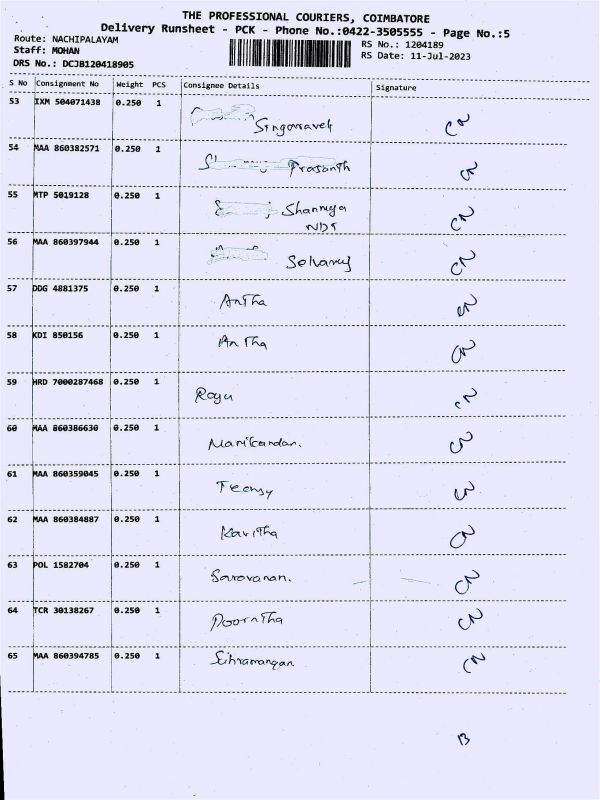 THE PROFESSIONAL COURIERS, COIMBATORE
Delivery Runsheet - PCK - Phone No.:0422-3505555 - Page No.:5
Route: NACHIPALAYAM
RS No.: 1204189
Staff: MOHAN
RS Date: 11-Jul-2023
DRS No.: DCJB120418905
S No Consignment No Weight PCS Consignee Details Signature
53 IXM 504071438 0.250 1 Singaravel CN
54 MAA 860382571 0.250 1 Prasanth CN
55 MTP 5019128 0.250 1 Shanmya CN
NDS
56 MAA 860397944 0.250 1 Selvaraj CN
57 DDG 4881375 0.250 1 Antha CN
58 KDI 850156 0.250 1 Antha CN
59 HRD 7000287468 0.250 1 Raju CN
60 MAA 860386630 0.250 1 Manikandan. CN
61 MAA 860359045 0.250 1 CN
62 MAA 860384887 0.250 1 Kavitha CN
63 POL 1582704 0.250 1 Saravanan. CN
64 TCR 30138267 0.250 1 Poorntha CN
65 MAA 860394785 0.250 1 CN
13